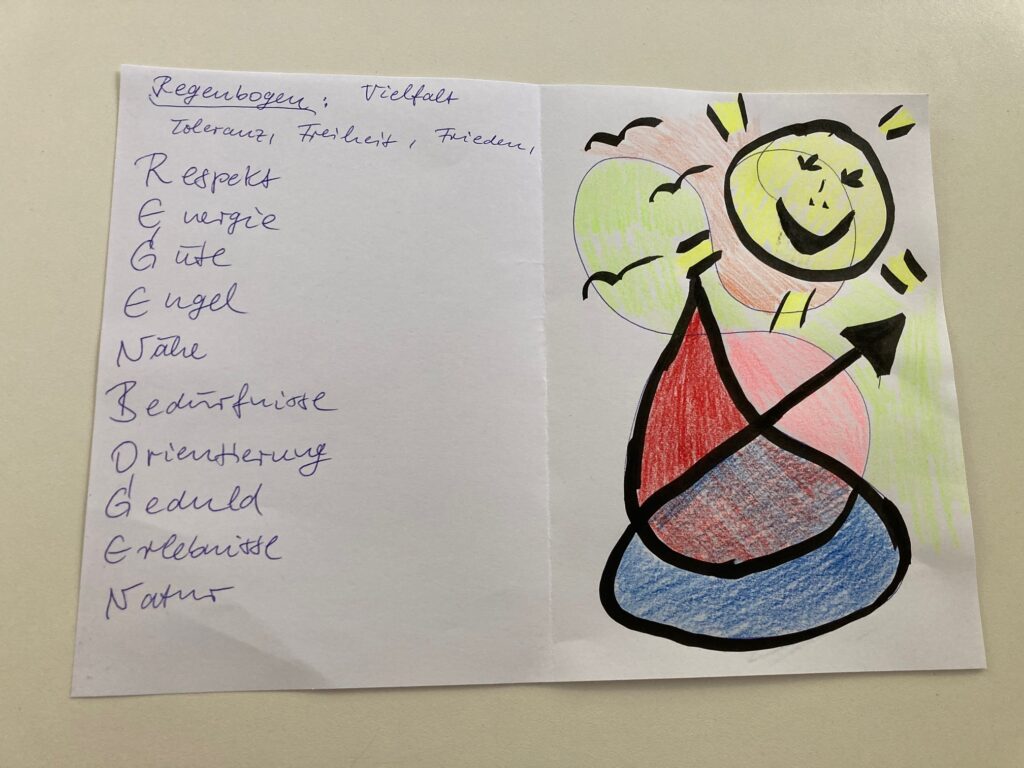 Regenbogen: Vielfalt
Toleranz, Freiheit, Frieden,
Respekt
Energie
Güte
Engel
Nähe
Bedürfnisse
Orientierung
Geduld
Erlebnisse
Natur